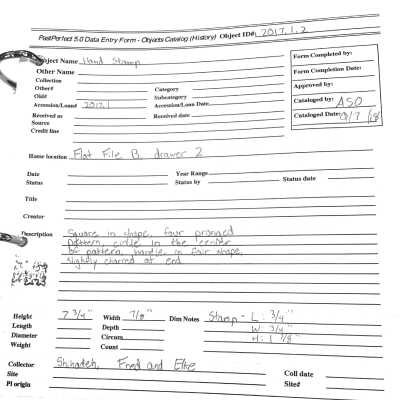 PastPerfect 5.0 Data Entry Form - Objects Catalog (History) Object ID#: 2017.1.2
Object Name Hand Stamp
Other Name
Collection
Other# Category
Old# Subcategory
Accession/Loan# 2017.1 Accession/Loan Date
Received as Received date
Source
Credit line
Form Completed by:
Form Completion Date:
Approved by:
Cataloged by: ASO
Cataloged Date:
Home location Flat File B, drawer 2
Date Year Range
Status Status by Status date
Title
Creator
Description Square in shape, four pronged
pattern, circle in the center
of pattern, handle in fair shape,
slightly charred at end
Height 7 3/4" Width 7/8" Dim Notes Stamp - L: 3/4"
Length Depth W: 3/4"
Diameter Circum H: 1 7/8"
Weight Count
Collector Shihadeh, Fred and Elke
Site Coll date
PI origin Site#